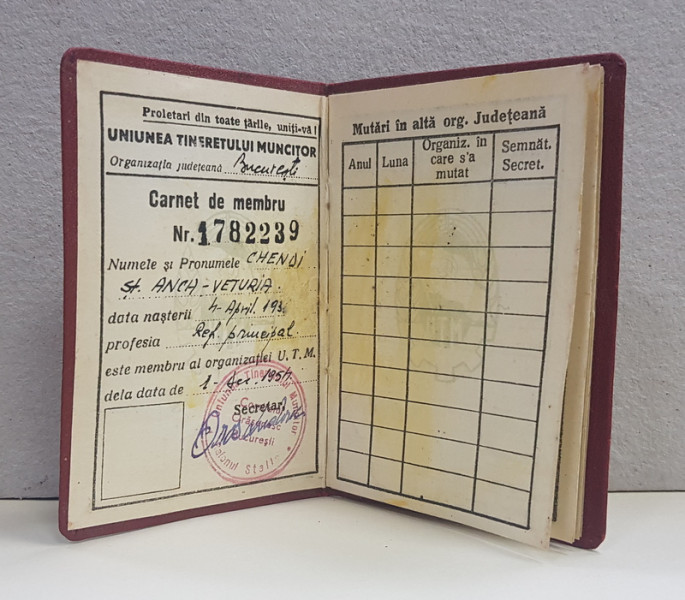 Proletari din toate țările, uniți-vă!
UNIUNEA TINERETULUI MUNCITOR
Organizația județeană București
Carnet de membru
Nr. 1782239
Numele și Pronumele CHENDI
Șt. ANCA-VETURIA.
data nașterii 4-April. 193
profesia Ref. principal.
este membru al organizației U.T.M.
dela data de 1-Dec.
Secretar,
Uniunea Tineretului Muncitor
București
Raionul Stalin
Mutări în altă org. Județeană
Anul
Luna
Organiz. în
care s'a
mutat
Semnăt.
Secret.
UTM